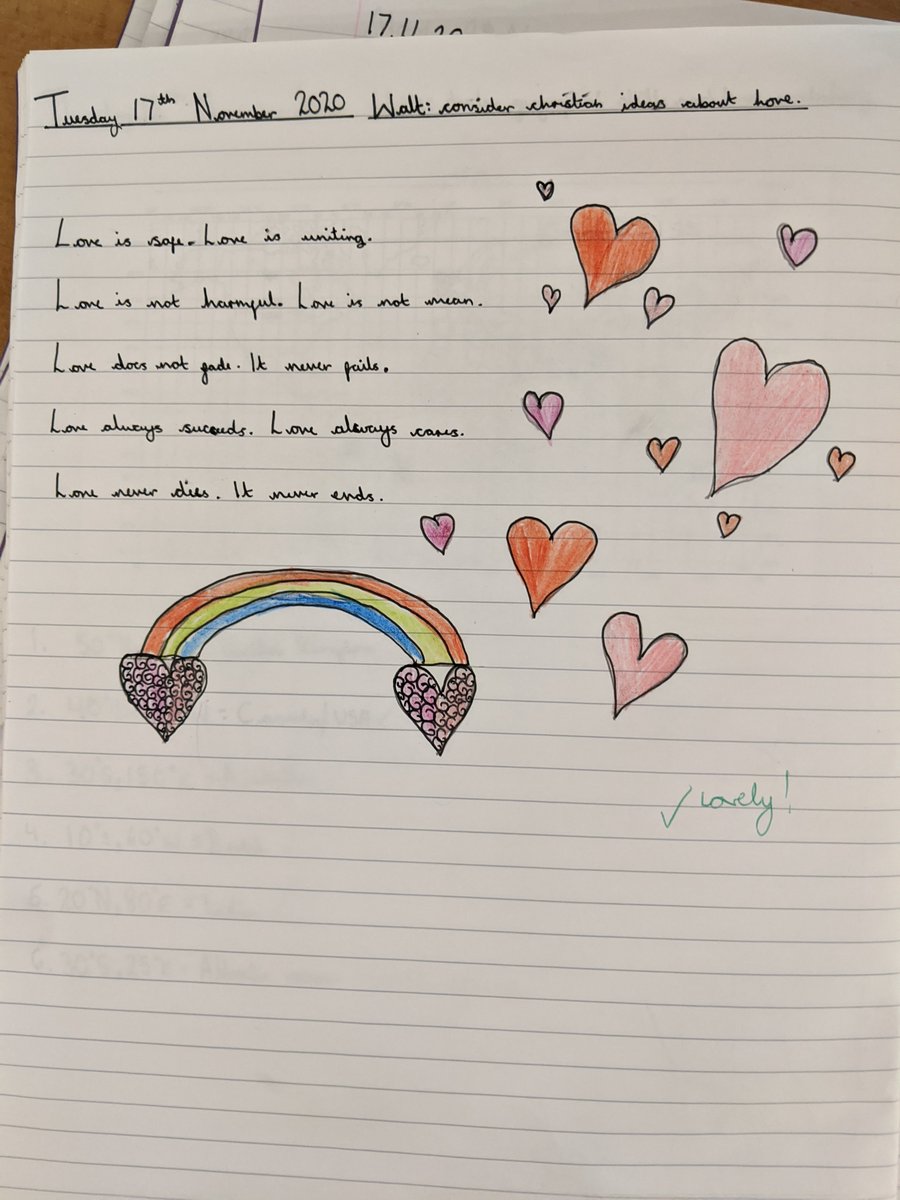 17.11.20
Tuesday 17th November 2020 Walt: consider christian ideas about love.
Love is safe. Love is uniting.
Love is not harmful. Love is not mean.
Love does not fade. It never fails.
Love always succeeds. Love always cares.
Love never dies. It never ends.
✓ Lovely!